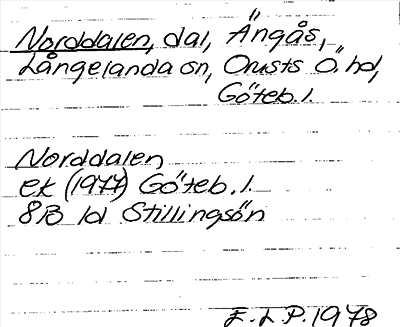 Norddalen, dal, Ängås,
Långelanda sn, Orusts Ö. hd,
Göteb. l.
Norddalen
ek (1977) Göteb. l.
8B 1d Stillingsön
E.L.P. 1978